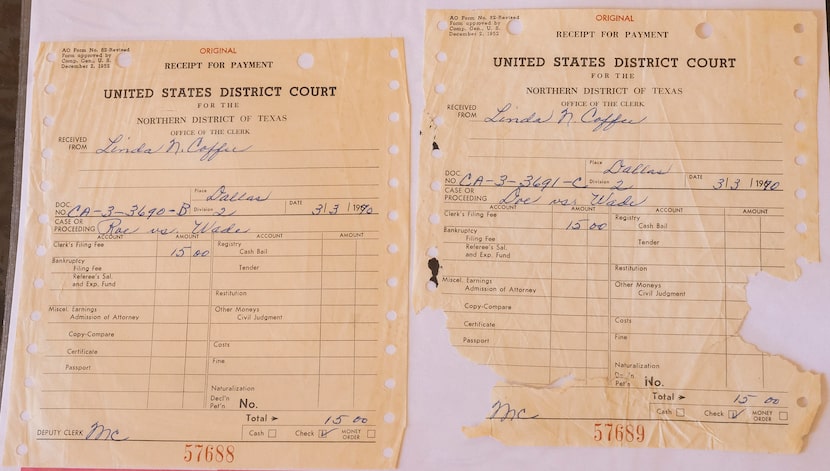 AO Form No. 82-Revised
Form approved by
Comp. Gen., U. S.
December 2, 1952
ORIGINAL
RECEIPT FOR PAYMENT
UNITED STATES DISTRICT COURT
FOR THE
NORTHERN DISTRICT OF TEXAS
OFFICE OF THE CLERK
RECEIVED FROM Linda N. Coffee
Place Dallas
DOC. NO. CA-3-3690-B Division 2 DATE 3/3/1970
CASE OR PROCEEDING Roe vs. Wade
ACCOUNT AMOUNT ACCOUNT AMOUNT
Clerk's Filing Fee 15 00 Registry
Cash Bail
Bankruptcy
Filing Fee Tender
Referee's Sal.
and Exp. Fund
Restitution
Miscel. Earnings Other Moneys
Admission of Attorney Civil Judgment
Copy-Compare
Costs
Certificate
Fine
Passport
Naturalization
Decl'n
Pet'n No.
Total ➤ 15 00
DEPUTY CLERK Mc Cash Check ✓ MONEY ORDER
57688
AO Form No. 82-Revised
Form approved by
Comp. Gen., U. S.
December 2, 1952
ORIGINAL
RECEIPT FOR PAYMENT
UNITED STATES DISTRICT COURT
FOR THE
NORTHERN DISTRICT OF TEXAS
OFFICE OF THE CLERK
RECEIVED FROM Linda N. Coffee
Place Dallas
DOC. NO. CA-3-3691-C Division 2 DATE 3/3/1970
CASE OR PROCEEDING Doe vs. Wade
ACCOUNT AMOUNT ACCOUNT AMOUNT
Clerk's Filing Fee 15 00 Registry
Cash Bail
Bankruptcy
Filing Fee Tender
Referee's Sal.
and Exp. Fund
Restitution
Miscel. Earnings Other Moneys
Admission of Attorney Civil Judgment
Copy-Compare
Costs
Certificate
Fine
Passport
Naturalization
Decl'n
Pet'n No.
Total ➤ 15 00
Mc Cash Check ✓ MONEY ORDER
57689